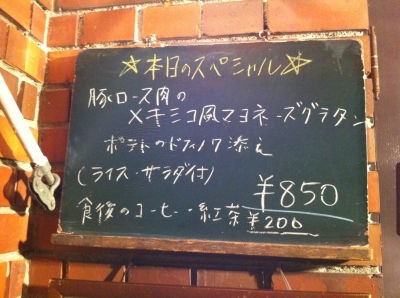 ☆本日のスペシャル☆
豚ロース肉の
メキシコ風マヨネーズグラタン
ポテトのドフィノワ添え
(ライス・サラダ付)
¥850
食後のコーヒー・紅茶¥200